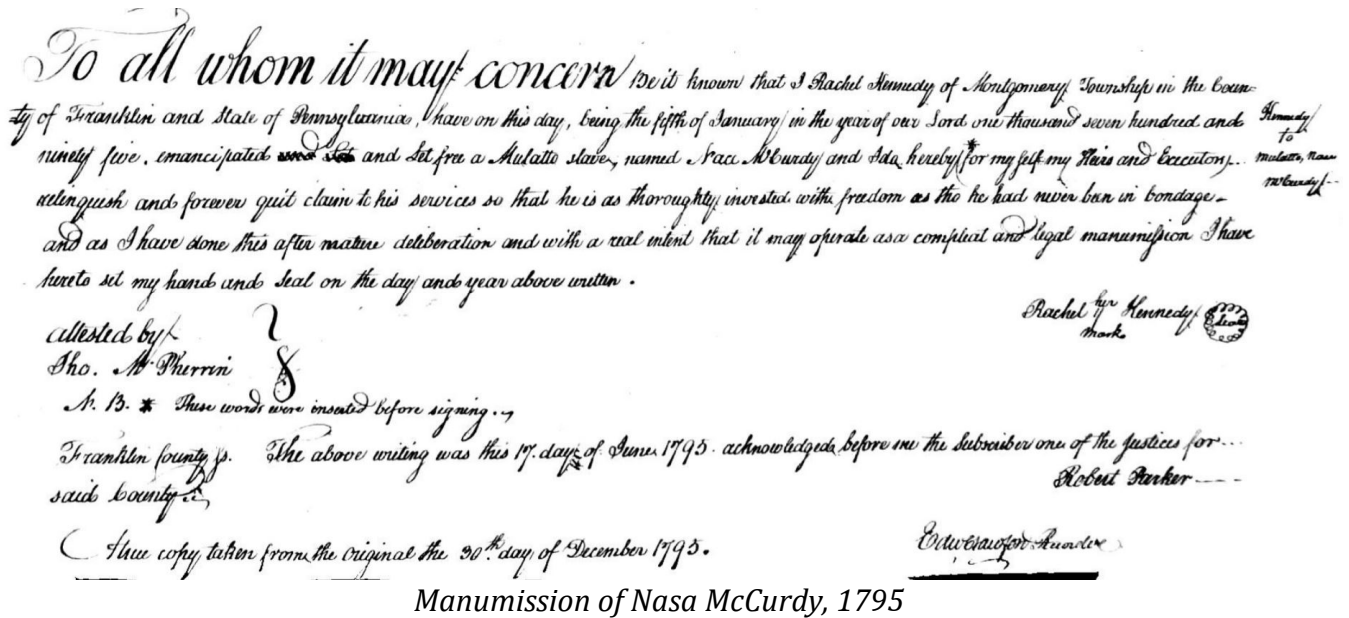 To all whom it may concern Be it known that I Rachel Kennedy of Montgomery Township in the Coun-
ty of Franklin and State of Pennsylvania, have on this day, being the fifth of January in the year of our Lord one thousand seven hundred and
Kennedy
to
mulatto, Nase
McCurdy
ninety five, emancipated and Set free a Mulatto slave, named Nace McCurdy and I do hereby * for my self my Heirs and Executors
relinquish and forever quit claim to his services so that he is as thoroughly invested with freedom as tho he had never ben in bondage
and as I have done this after mature deliberation and with a real intent that it may operate as a compleat and legal manumission I have
hereto set my hand and Seal on the day and year above written.
Rachel her Kennedy Seal
mark
attested by
Tho. Mc Pherrin
N. B. * These words were inserted before signing.
Franklin County ss. The above writing was this 17. day of June 1795. acknowledged before me the Subscriber one of the Justices for
said County
Robert Parker
A true copy taken from the Original the 30th day of December 1795.
Edw Crawford Recorder
Manumission of Nasa McCurdy, 1795